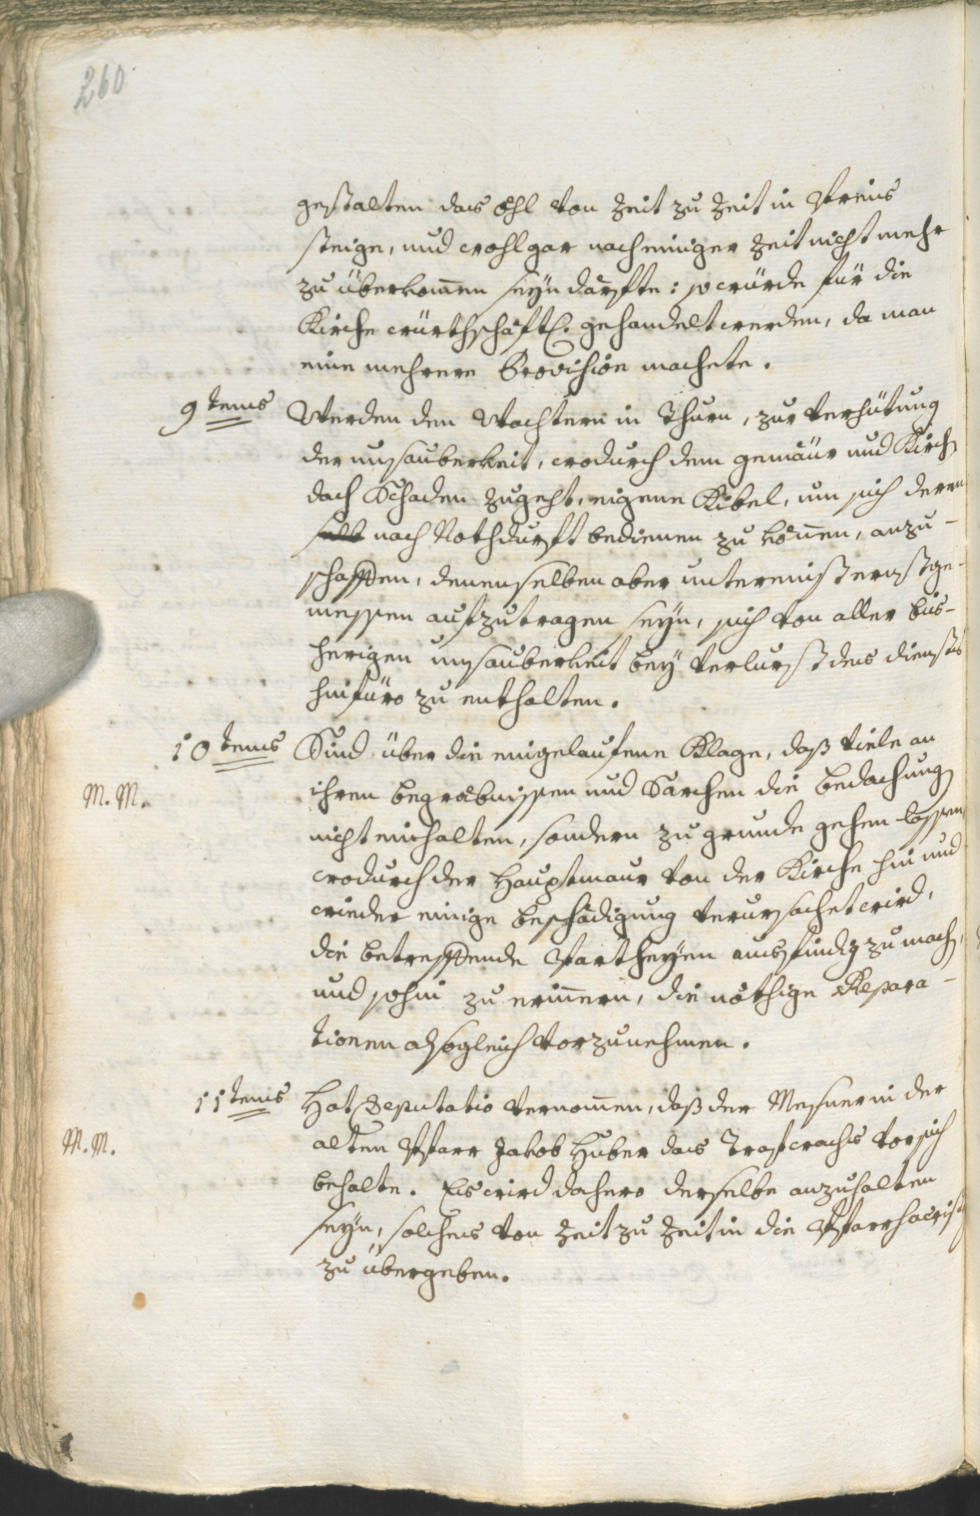 260
gestalten das öhl von Zeit zu Zeit in Preiis
steige, und wohl gar nach einiger Zeit nicht mehr
zu überkom̅en seÿn därfte: so würde für die
Kirche würthschäftl. gehandelt werden, da man
eine mehrere Provision machete.
9tens Werden den Wachtern in Thurn, zur verhütung
der unsauberkeit, wodurch dem gemäur und Kirch
dach Schaden zugeht, eigene Kibel, um sich deren
nach Nothdurft bedienen zu kön̅en, anzu-
schaffen, denenselben aber unter einst ernstge-
messen aufzutragen seÿn, sich von aller bis-
herigen unsauberkeit beÿ verlurst des diensts
hinfüro zu enthalten.
10tens Sind über die eingelaufene Klage, daß viele an
M. M. ihren begräbnissen und Sarchen die bedachung
nicht einhalten, sondern zu grunde gehen lassen
wodurch der Hauptmaur von der Kirche hin und
wieder einige beschädigung verursachet wird,
die betreffende Partheÿen ausfindig zu mach,
und sohin zu erin̅ern, die nöthige Repara-
tionen alsogleich vorzunehmen.
11tens Hat Deputatio vernom̅en, daß der Mesner in der
M. M. alten Pfarr Jakob Huber das Trafwachs vor sich
behalte. Es wird dahero derselbe anzuhalten
seÿn, solches von Zeit zu Zeit in die Pfarrsacristeÿ
zu übergeben.